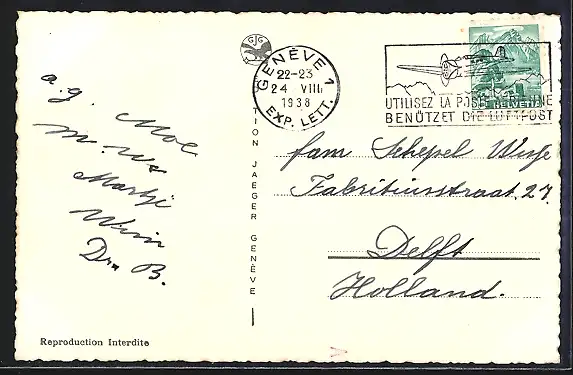 GJG
GENÈVE 1
22-23
24 VIII
1938
EXP. LETT.
UTILISEZ LA POSTE AÉRIENNE
BENÜTZET DIE LUFTPOST
HELVETIA
a.g. Moe
Martji
Wim
Dr. B.
TION JAEGER GENÈVE
fam Schepel
Fabritiusstraat 27.
Delft
Holland.
Reproduction Interdite